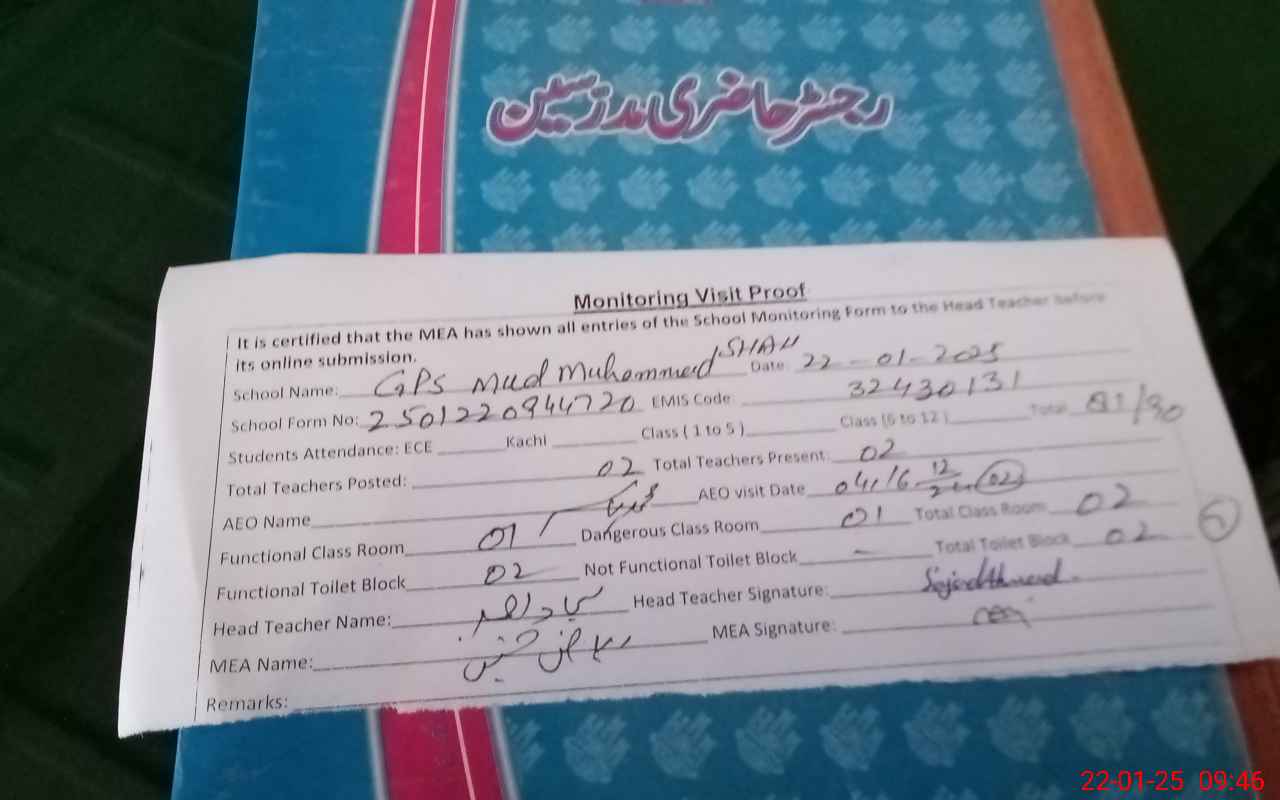 رجسٹر حاضری مدرسین
Monitoring Visit Proof
It is certified that the MEA has shown all entries of the School Monitoring Form to the Head Teacher before
its online submission.
School Name: GPS Mud Muhammad SHAH Date 22-01-2025
School Form No: 2501220944720 EMIS Code 32430131
Students Attendance: ECE Kachi Class ( 1 to 5 ) Class (6 to 12 ) Total /90
Total Teachers Posted: 02 Total Teachers Present: 02
AEO Name AEO visit Date 04/16 12/24 (02)
Functional Class Room 01 Dangerous Class Room 01 Total Class Room 02
Functional Toilet Block 02 Not Functional Toilet Block - Total Toilet Block 02
Head Teacher Name: سجاد احمد Head Teacher Signature: Sajad Ahmad
MEA Name: MEA Signature:
Remarks:
22-01-25 09:46